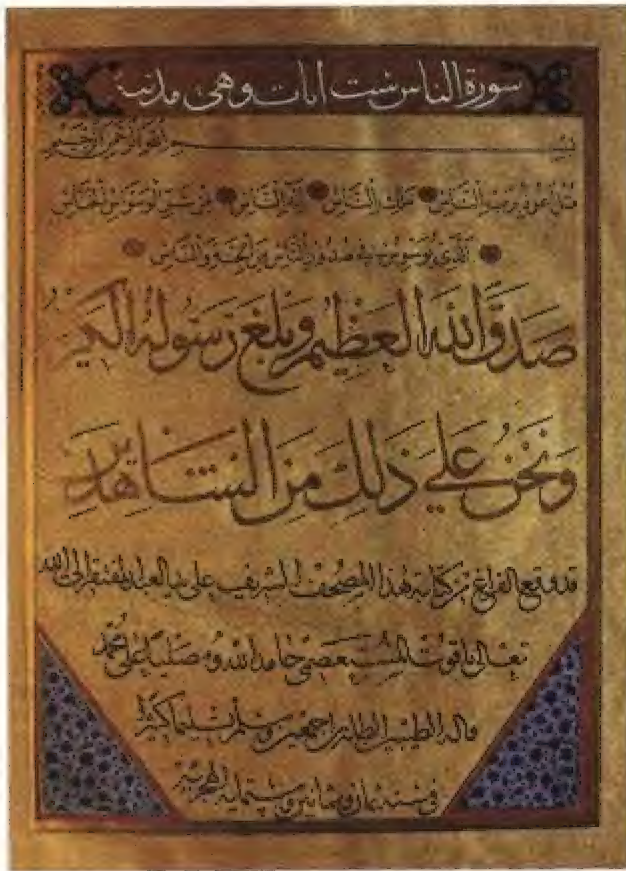 سورة الناس ست ايات وهي مدنية
بسم الله الرحمن الرحيم
قل أعوذ برب الناس ملك الناس إله الناس من شر الوسواس الخناس
الذي يوسوس في صدور الناس من الجنة والناس
صدق الله العظيم وبلغ رسوله الكريم
ونحن علي ذلك من الشاهدين
قد وقع الفراغ من كتابة هذا المصحف الشريف علي يد العبد المفتقر الى الله
تعالى ياقوت المستعصمي حامدا لله ومصليا على محمد
واله الطيبين الطاهرين اجمعين وسلم تسليما كثيرا
في سنة ثمان وثمانين وستمایة الهجرية